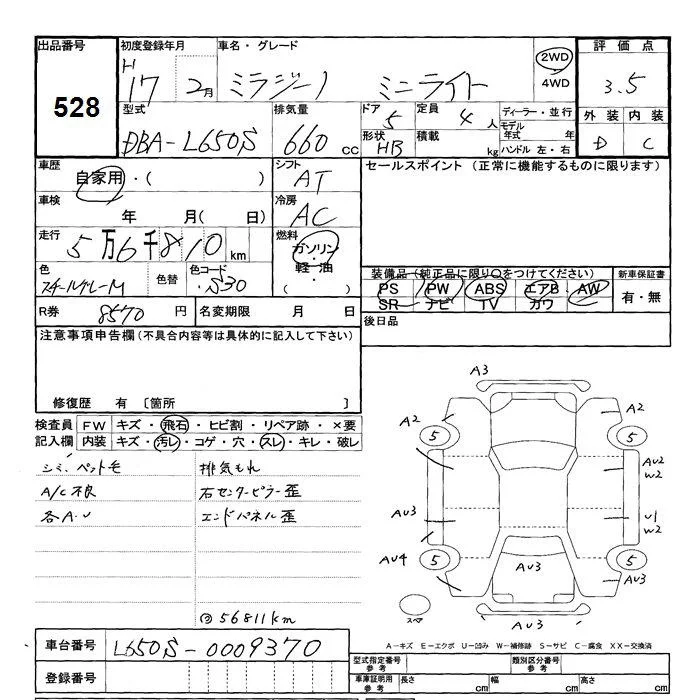 出品番号 初度登録年月 車名・グレード 評価点
528
H 17 2月 ミラジーノ ミニライト 2WD 4WD 3.5
型式 排気量 ドア 5 定員 4人 ディーラー・並行 外装 内装
DBA-L650S 660 cc 形状 HB 積載 kg モデル年式 年 ハンドル 左・右 D C
車歴 自家用・( ) シフト AT セールスポイント (正常に機能するものに限ります)
車検 年 月( 日) 冷房 AC
走行 5万6千810km 燃料 ガソリン・軽油・
色 スチールグレーM 色替 色コード S30 装備品(純正品に限り○をつけてください) 新車保証書
PS PW ABS エアB AW 有・無
SR ナビ TV カワ
R券 8570円 名変期限 月 日 後日品
注意事項申告欄(不具合内容等は具体的に記入して下さい)
修復歴 有 〔箇所 〕
検査員 FW キズ・飛石・ヒビ割・リペア跡・×要
記入欄 内装 キズ・汚レ・コゲ・穴・スレ・キレ・破レ
シミ、ペット毛 排気もれ
A/C不良 右センターピラー歪
各A・U エンドパネル歪
56811km
A3
A2 A2
5 5
AU2
W2
AU3 U1
W2
AU4 5 5
AU3 A3
スペア AU3
A−キズ E−エクボ U−凹み W−補修跡 S−サビ C−腐食 XX−交換済
車台番号 L650S-0009370
型式指定番号 参考 類別区分番号 参考
登録番号 車庫証明用 参考 長さ cm 幅 cm 高さ cm